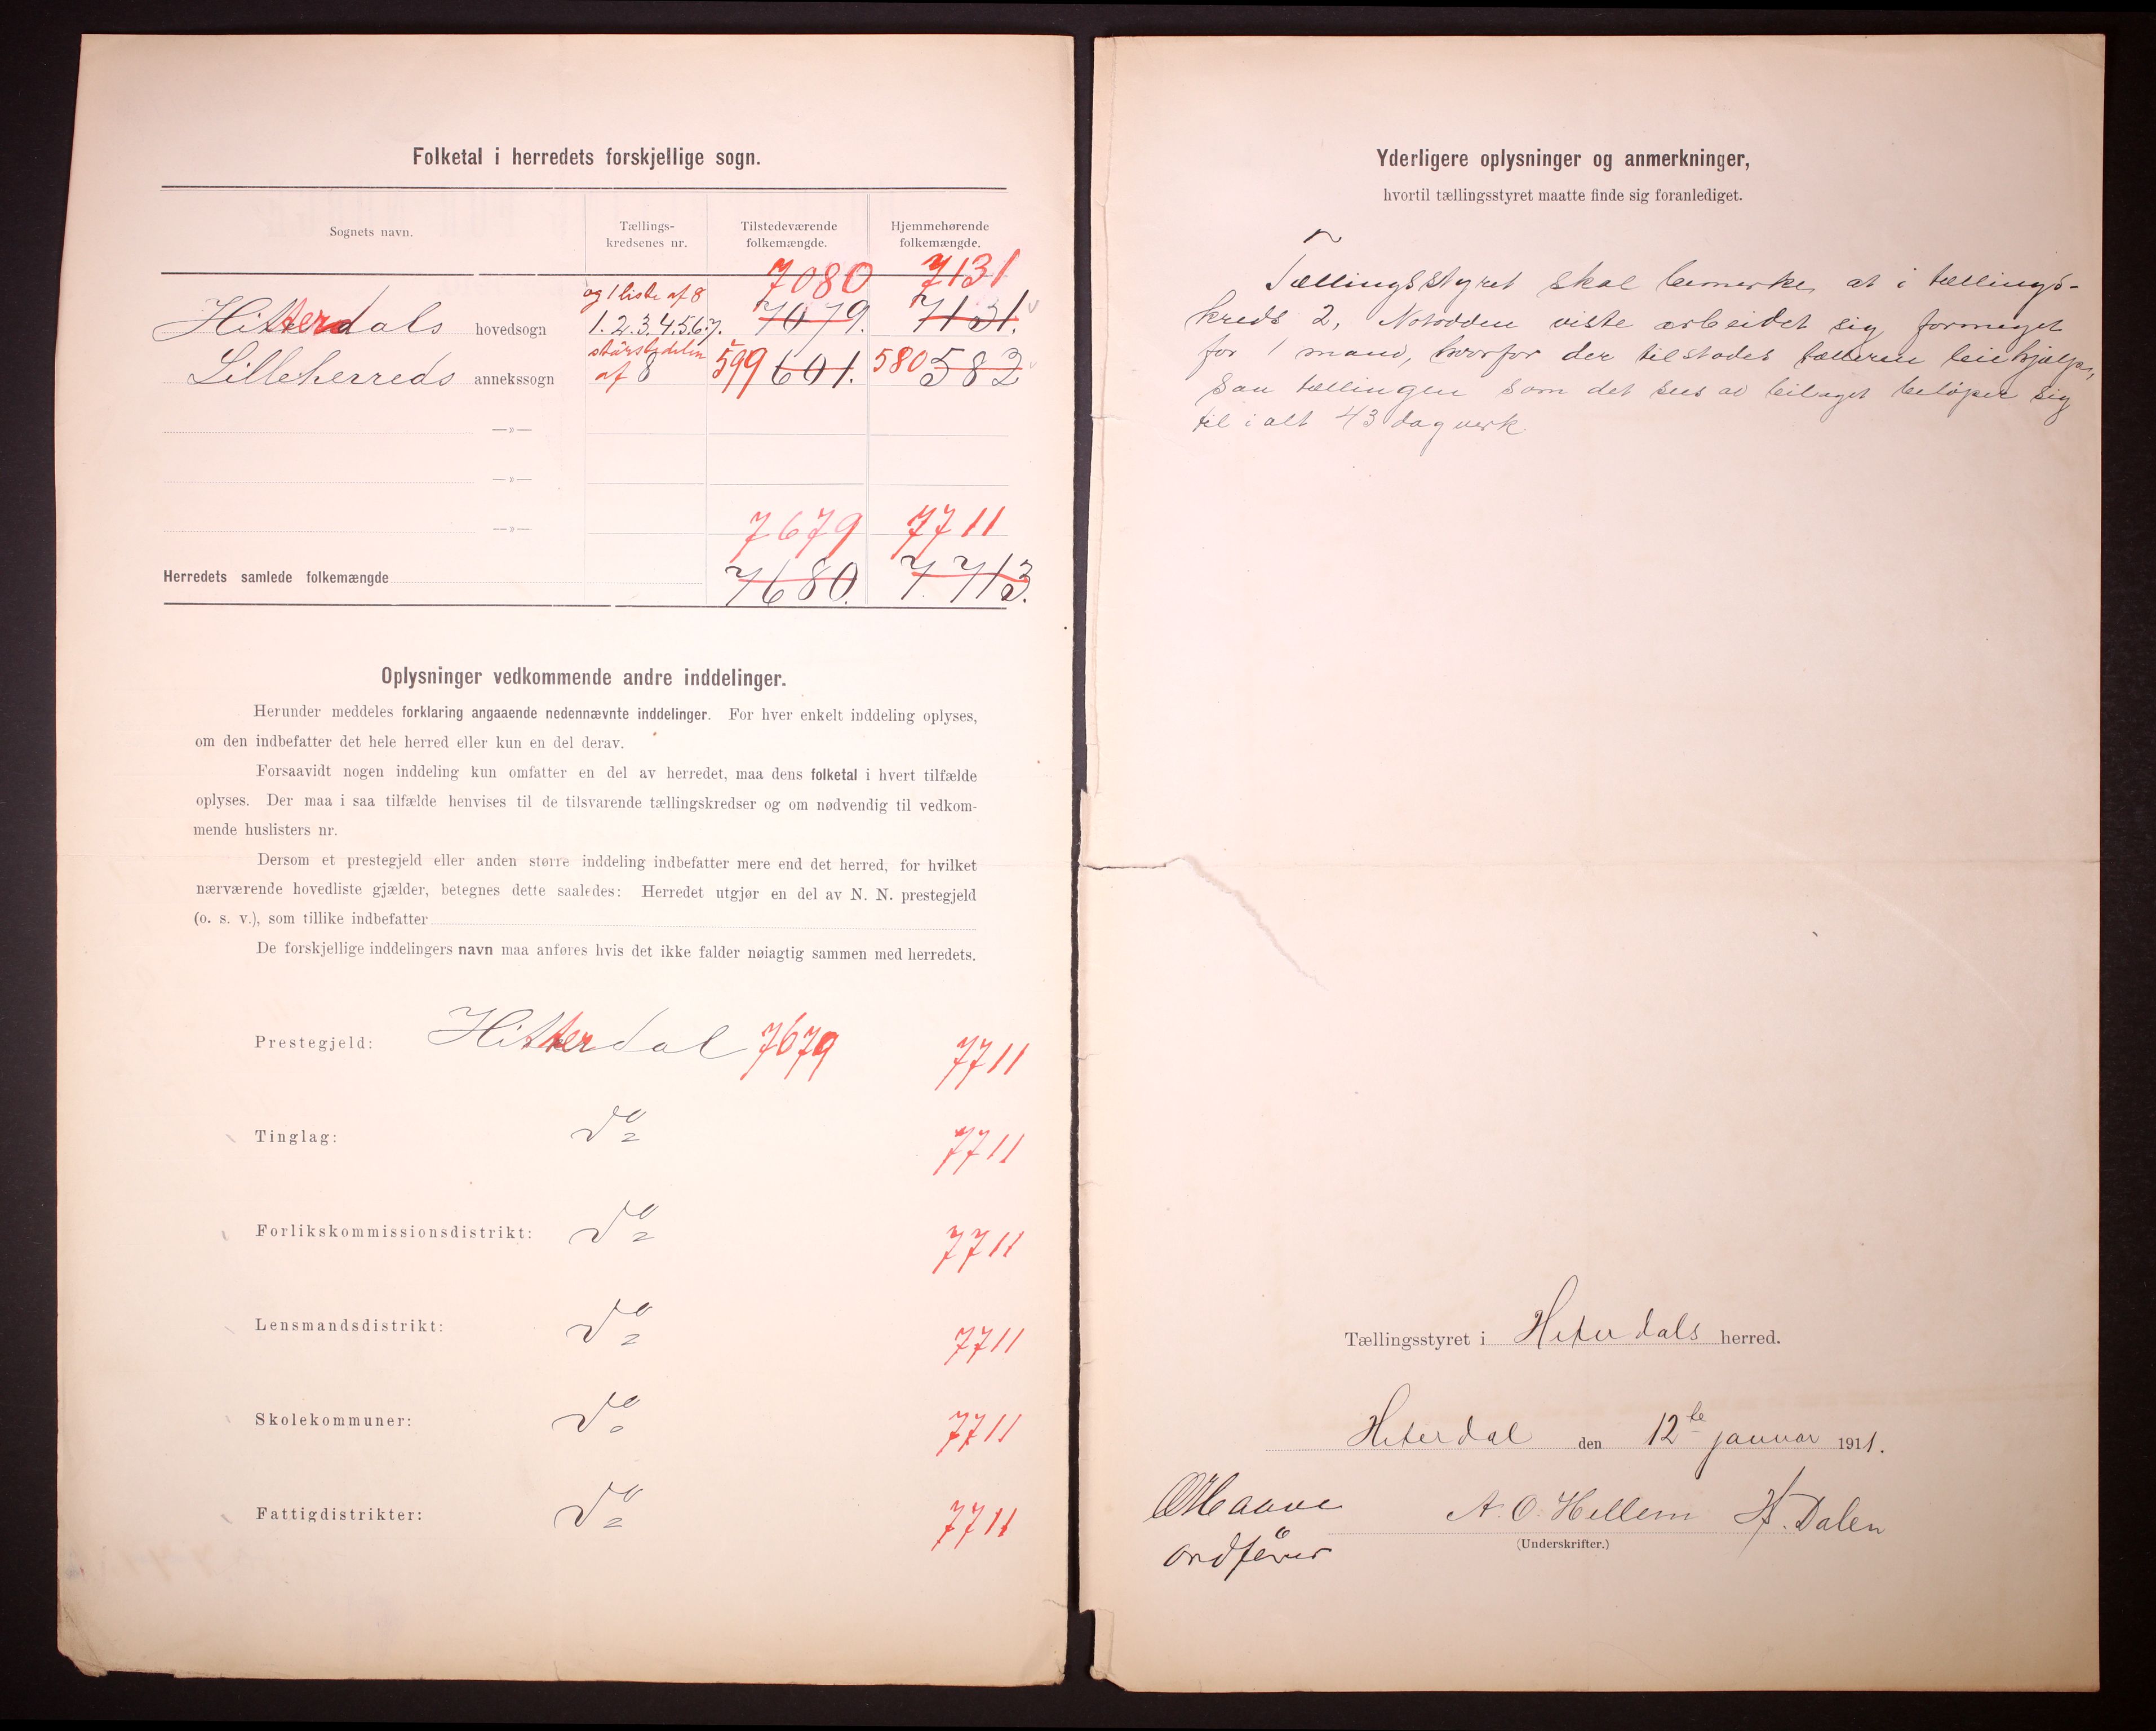 Folketal i herredets forskjellige sogn.
Sognets navn.
Tællings-
kredsenes nr.
Tilstedeværende
folkemængde.
Hjemmehørende
folkemængde.
7080 7131
og 1 liste af 8
Hitterdals hovedsogn 1.2.3.4.5.6.7. 7079. 7131.
Lilleherreds annekssogn størstedelen af 8 599 601. 580 583
—»—
—»—
—»—
7679 7711
Herredets samlede folkemængde 7680. 7.713.
Oplysninger vedkommende andre inddelinger.
Herunder meddeles forklaring angaaende nedennævnte inddelinger. For hver enkelt inddeling oplyses,
om den indbefatter det hele herred eller kun en del derav.
Forsaavidt nogen inddeling kun omfatter en del av herredet, maa dens folketal i hvert tilfælde
oplyses. Der maa i saa tilfælde henvises til de tilsvarende tællingskredser og om nødvendig til vedkom-
mende huslisters nr.
Dersom et prestegjeld eller anden større inddeling indbefatter mere end det herred, for hvilket
nærværende hovedliste gjælder, betegnes dette saaledes: Herredet utgjør en del av N. N. prestegjeld
(o. s. v.), som tillike indbefatter
De forskjellige inddelingers navn maa anføres hvis det ikke falder nøiagtig sammen med herredets.
Prestegjeld: Hitterdal 7679 7711
Tinglag: do 7711
Forlikskommissionsdistrikt: do 7711
Lensmandsdistrikt: do 7711
Skolekommuner: do 7711
Fattigdistrikter: do 7711
Yderligere oplysninger og anmerkninger,
hvortil tællingsstyret maatte finde sig foranlediget.
Tællingsstyret skal bemerke, at i tællings-
kreds 2, Notodden viste arbeidet sig formeget
for 1 mand, hvorfor der tilstodes tælleren leiehjælp,
saa tællingen som det sees av bilaget beløper sig
til i alt 43 dagverk
Tællingsstyret i Hiterdals herred.
Hiterdal den 12te januar 1911.
A. O. Hellem H. Dalen
ordfører
(Underskrifter.)